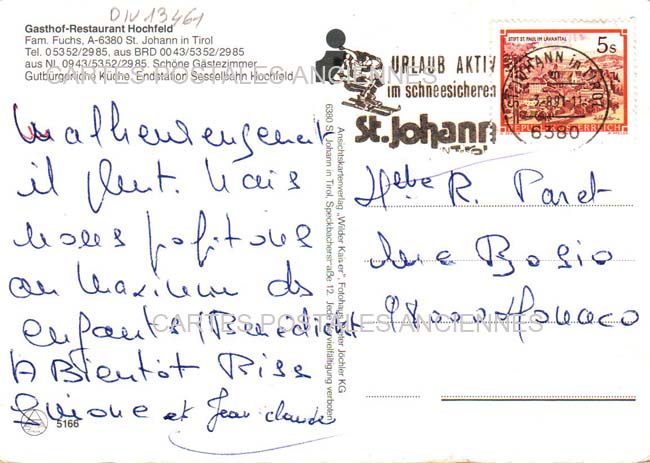 DIV13461
Gasthof-Restaurant Hochfeld
Fam. Fuchs, A-6380 St. Johann in Tirol
Tel. 05352/2985, aus BRD 0043/5352/2985
aus NL 0943/5352/2985. Schöne Gästezimmer
Gutbürgerliche Küche, Endstation Sessellbahn Hochfeld
URLAUB AKTIV
im schneesicheren
St. Johann
IN TIROL
STIFT ST. PAUL IM LAVANTTAL
5s
REPUBLIK ÖSTERREICH
ST. JOHANN in TIROL
6380
CARTES POSTALES ANCIENNES
Malheureusement
il pleut. Mais
nous profitons
au maximum des
enfants (Benedicte
A Bientôt Biss
et Jean claude
5166
Ansichtskartenverlag „Wilder Kaiser", Fotohaus Peter Jöchler KG
6380 St. Johann in Tirol, Speckbacherstraße 12, Jede Vervielfältigung verboten
R. Paret
Bosio
98000 Monaco
CARTES POSTALES ANCIENNES